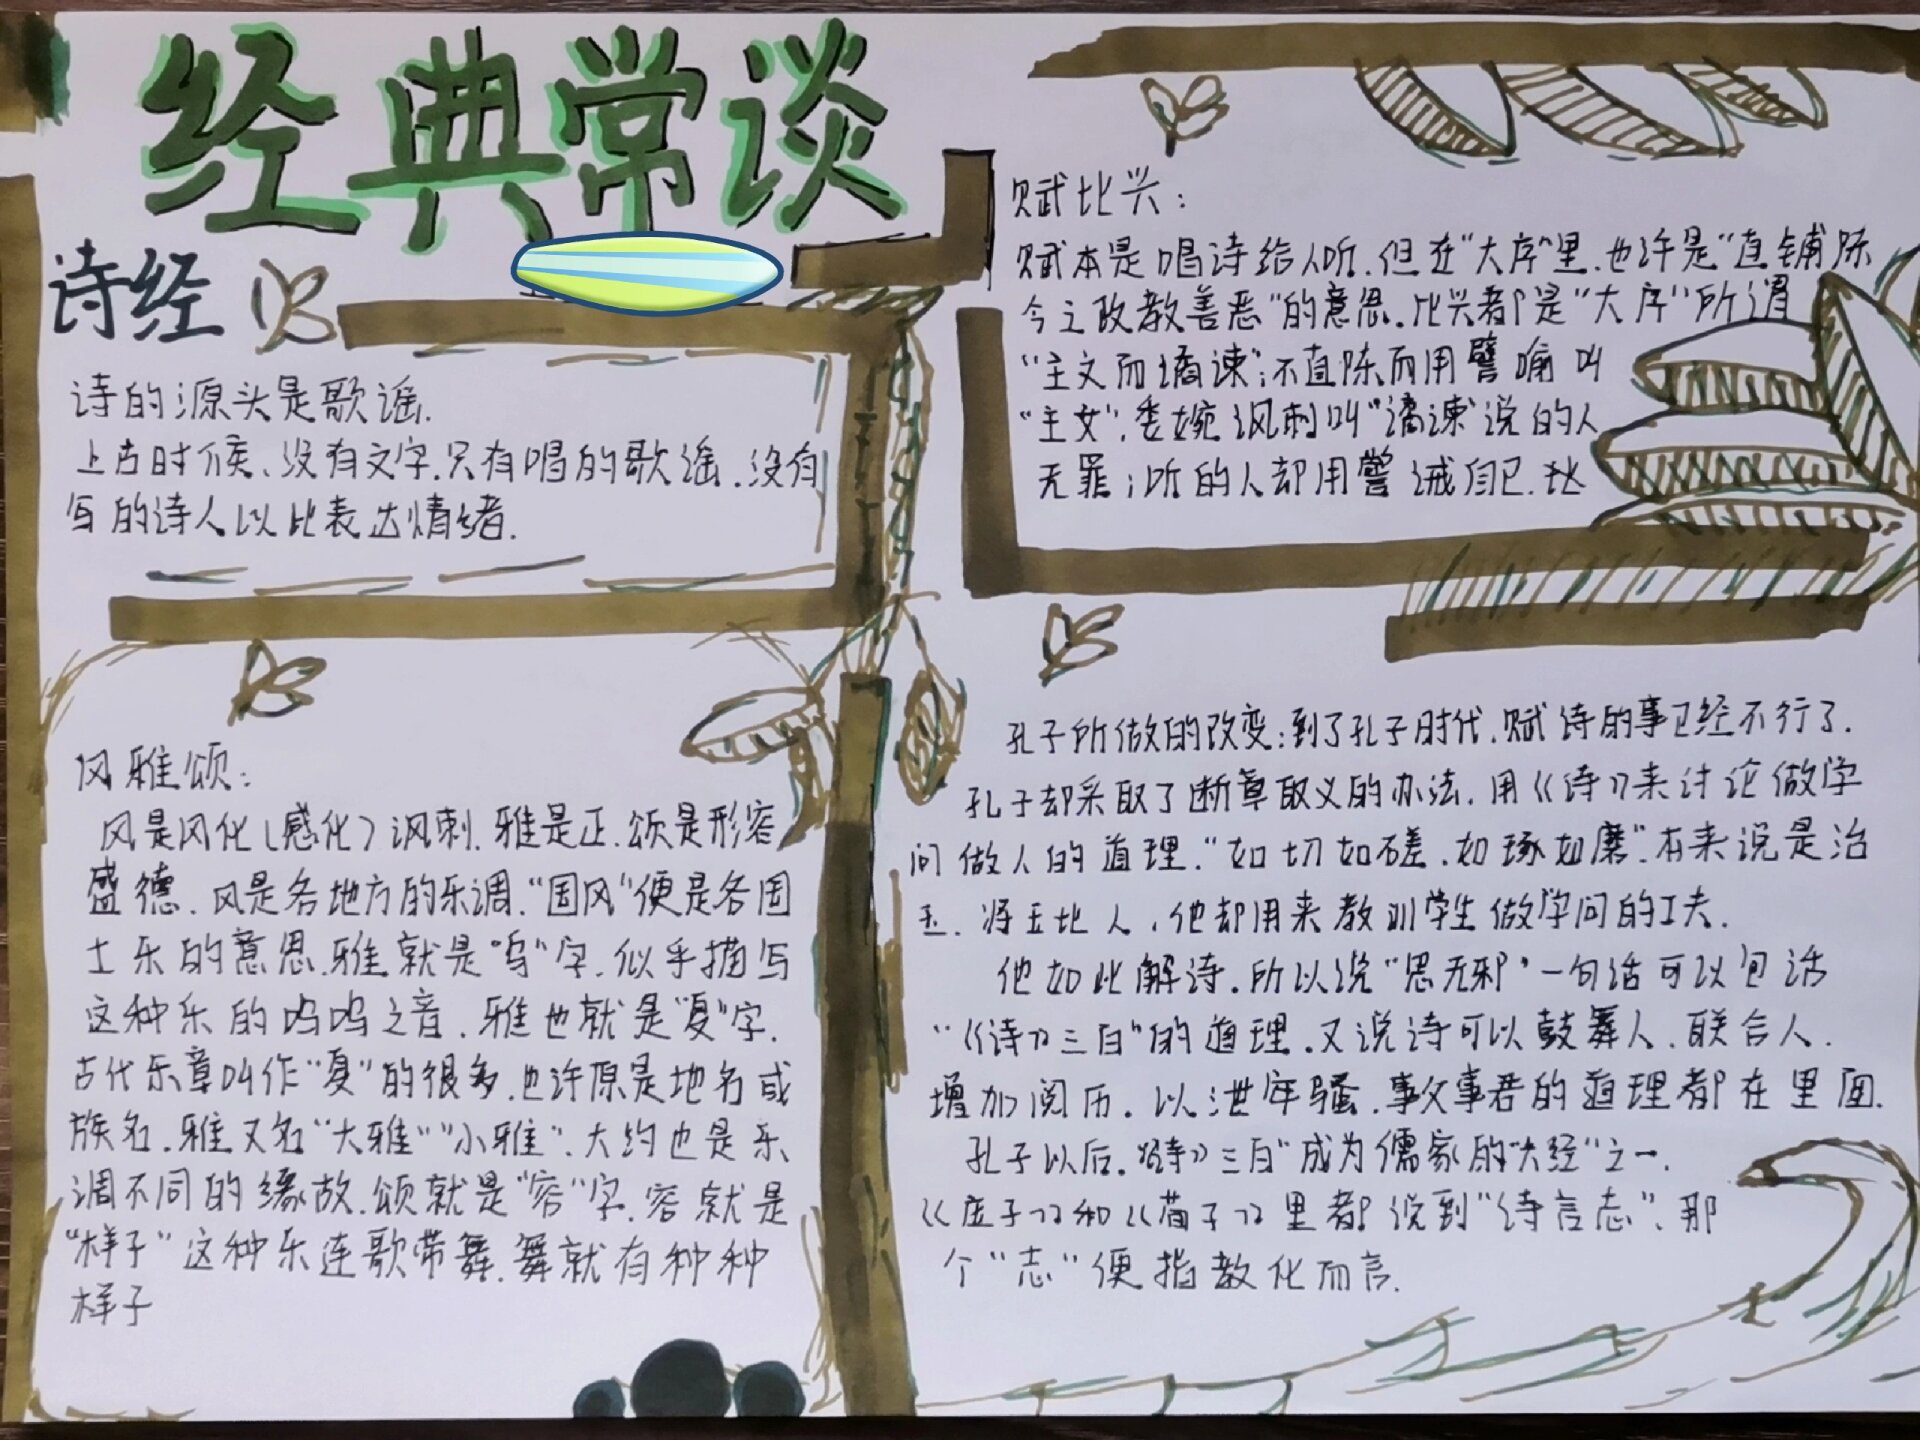 经典常谈
诗经
诗的源头是歌谣.
上古时候、没有文字.只有唱的歌谣.没有
写的诗人以此表达情绪.
风雅颂:
风是风化(感化)讽刺.雅是正.颂是形容
盛德.风是各地方的乐调.“国风”便是各国
土乐的意思.雅就是“乌”字.似乎描写
这种乐的呜呜之音.雅也就是“夏”字.
古代乐章叫作“夏”的很多.也许原是地名或
族名.雅又名“大雅”“小雅”.大约也是乐
调不同的缘故.颂就是“容”字.容就是
“样子”这种乐连歌带舞.舞就有种种
样子
赋比兴:
赋本是唱诗给人听.但在“大序”里.也许是“直铺陈
今之政教善恶”的意思.比兴都是“大序”所谓
“主文而谲谏”;不直陈而用譬喻叫
“主文”.委婉讽刺叫“谲谏”说的人
无罪;听的人却用警诫自己.
孔子所做的改变:到了孔子时代.赋诗的事已经不行了.
孔子却采取了断章取义的办法.用《诗》来讨论做学
问做人的道理.“如切如磋.如琢如磨”.本来说是治
玉.将玉比人.他却用来教训学生做学问的工夫.
他如此解诗.所以说“思无邪”一句话可以包括
“《诗》三百”的道理.又说诗可以鼓舞人.联合人.
增加阅历.以泄牢骚.事父事君的道理都在里面.
孔子以后.“《诗》三百”成为儒家的“六经”之一.
《庄子》和《荀子》里都说到“诗言志”.那
个“志”便指教化而言.